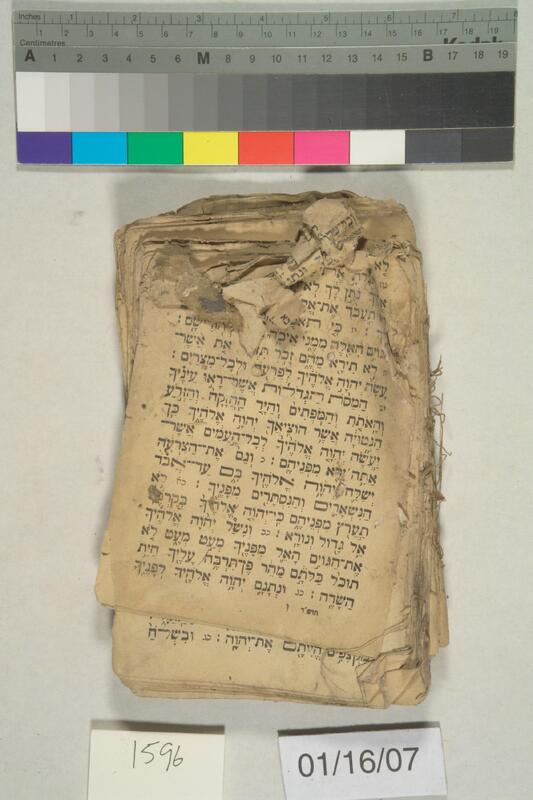 Inches 1 2 3 4 5 6 7 8
Centimetres 1 2 3 4 5 6 7 8 9 10 11 12 13 14 15 16 17 18 19
Kodak
A 1 2 3 4 5 6 M 8 9 10 11 12 13 14 15 B 17 18 19
לֹא
נֹתֵן לָךְ לֹא
תַעֲבֹד אֶת־
כִּי תֹאמַר
הָאֵלֶּה מִמֶּנִּי אֵיכָה
לֹא תִירָא מֵהֶם זָכֹר אֵת אֲשֶׁר־
עָשָׂה יְהוָה אֱלֹהֶיךָ לְפַרְעֹה וּלְכָל־מִצְרָיִם :
הַמַּסֹּת הַגְּדֹלֹת אֲשֶׁר־רָאוּ עֵינֶיךָ
וְהָאֹתֹת וְהַמֹּפְתִים וְהַיָּד הַחֲזָקָה וְהַזְּרֹעַ
הַנְּטוּיָה אֲשֶׁר הוֹצִיאֲךָ יְהוָה אֱלֹהֶיךָ כֵּן
יַעֲשֶׂה יְהוָה אֱלֹהֶיךָ לְכָל־הָעַמִּים אֲשֶׁר־
אַתָּה יָרֵא מִפְּנֵיהֶם : כ וְגַם אֶת־הַצִּרְעָה
יְשַׁלַּח יְהוָה אֱלֹהֶיךָ בָּם עַד־אֲבֹד
הַנִּשְׁאָרִים וְהַנִּסְתָּרִים מִפָּנֶיךָ : כא לֹא
תַעֲרֹץ מִפְּנֵיהֶם כִּי־יְהוָה אֱלֹהֶיךָ בְּקִרְבֶּךָ
אֵל גָּדוֹל וְנוֹרָא : כב וְנָשַׁל יְהוָה אֱלֹהֶיךָ
אֶת־הַגּוֹיִם הָאֵל מִפָּנֶיךָ מְעַט מְעָט לֹא
תוּכַל כַּלֹּתָם מַהֵר פֶּן־תִּרְבֶּה עָלֶיךָ חַיַּת
הַשָּׂדֶה : כג וּנְתָנָם יְהוָה אֱלֹהֶיךָ לְפָנֶיךָ
מַקְצִפִים הֱיִיתֶם אֶת־יְהוָה : כג וּבִשְׁלֹחַ
1596
01/16/07